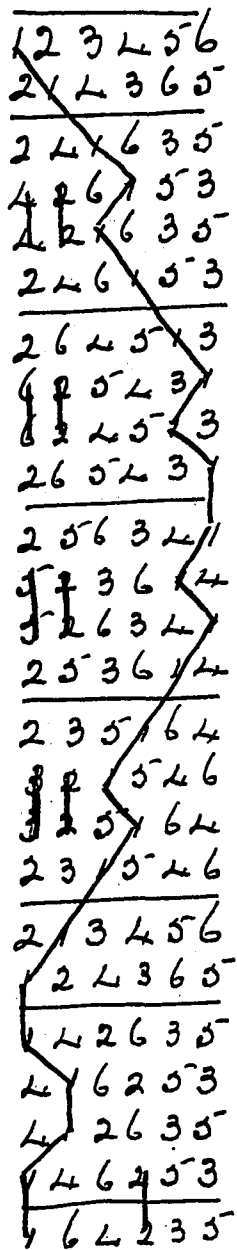 1 2 3 4 5 6
2 1 4 3 6 5
2 4 1 6 3 5
4 2 6 1 5 3
4 2 1 6 3 5
2 4 6 1 5 3
2 6 4 5 1 3
6 2 5 4 3 1
6 2 4 5 1 3
2 6 5 4 3 1
2 5 6 3 4 1
5 2 3 6 1 4
5 2 6 3 4 1
2 5 3 6 1 4
2 3 5 1 6 4
3 2 1 5 4 6
3 2 5 1 6 4
2 3 1 5 4 6
2 1 3 4 5 6
1 2 4 3 6 5
1 4 2 6 3 5
4 1 6 2 5 3
4 1 2 6 3 5
1 4 6 2 5 3
1 6 4 2 3 5